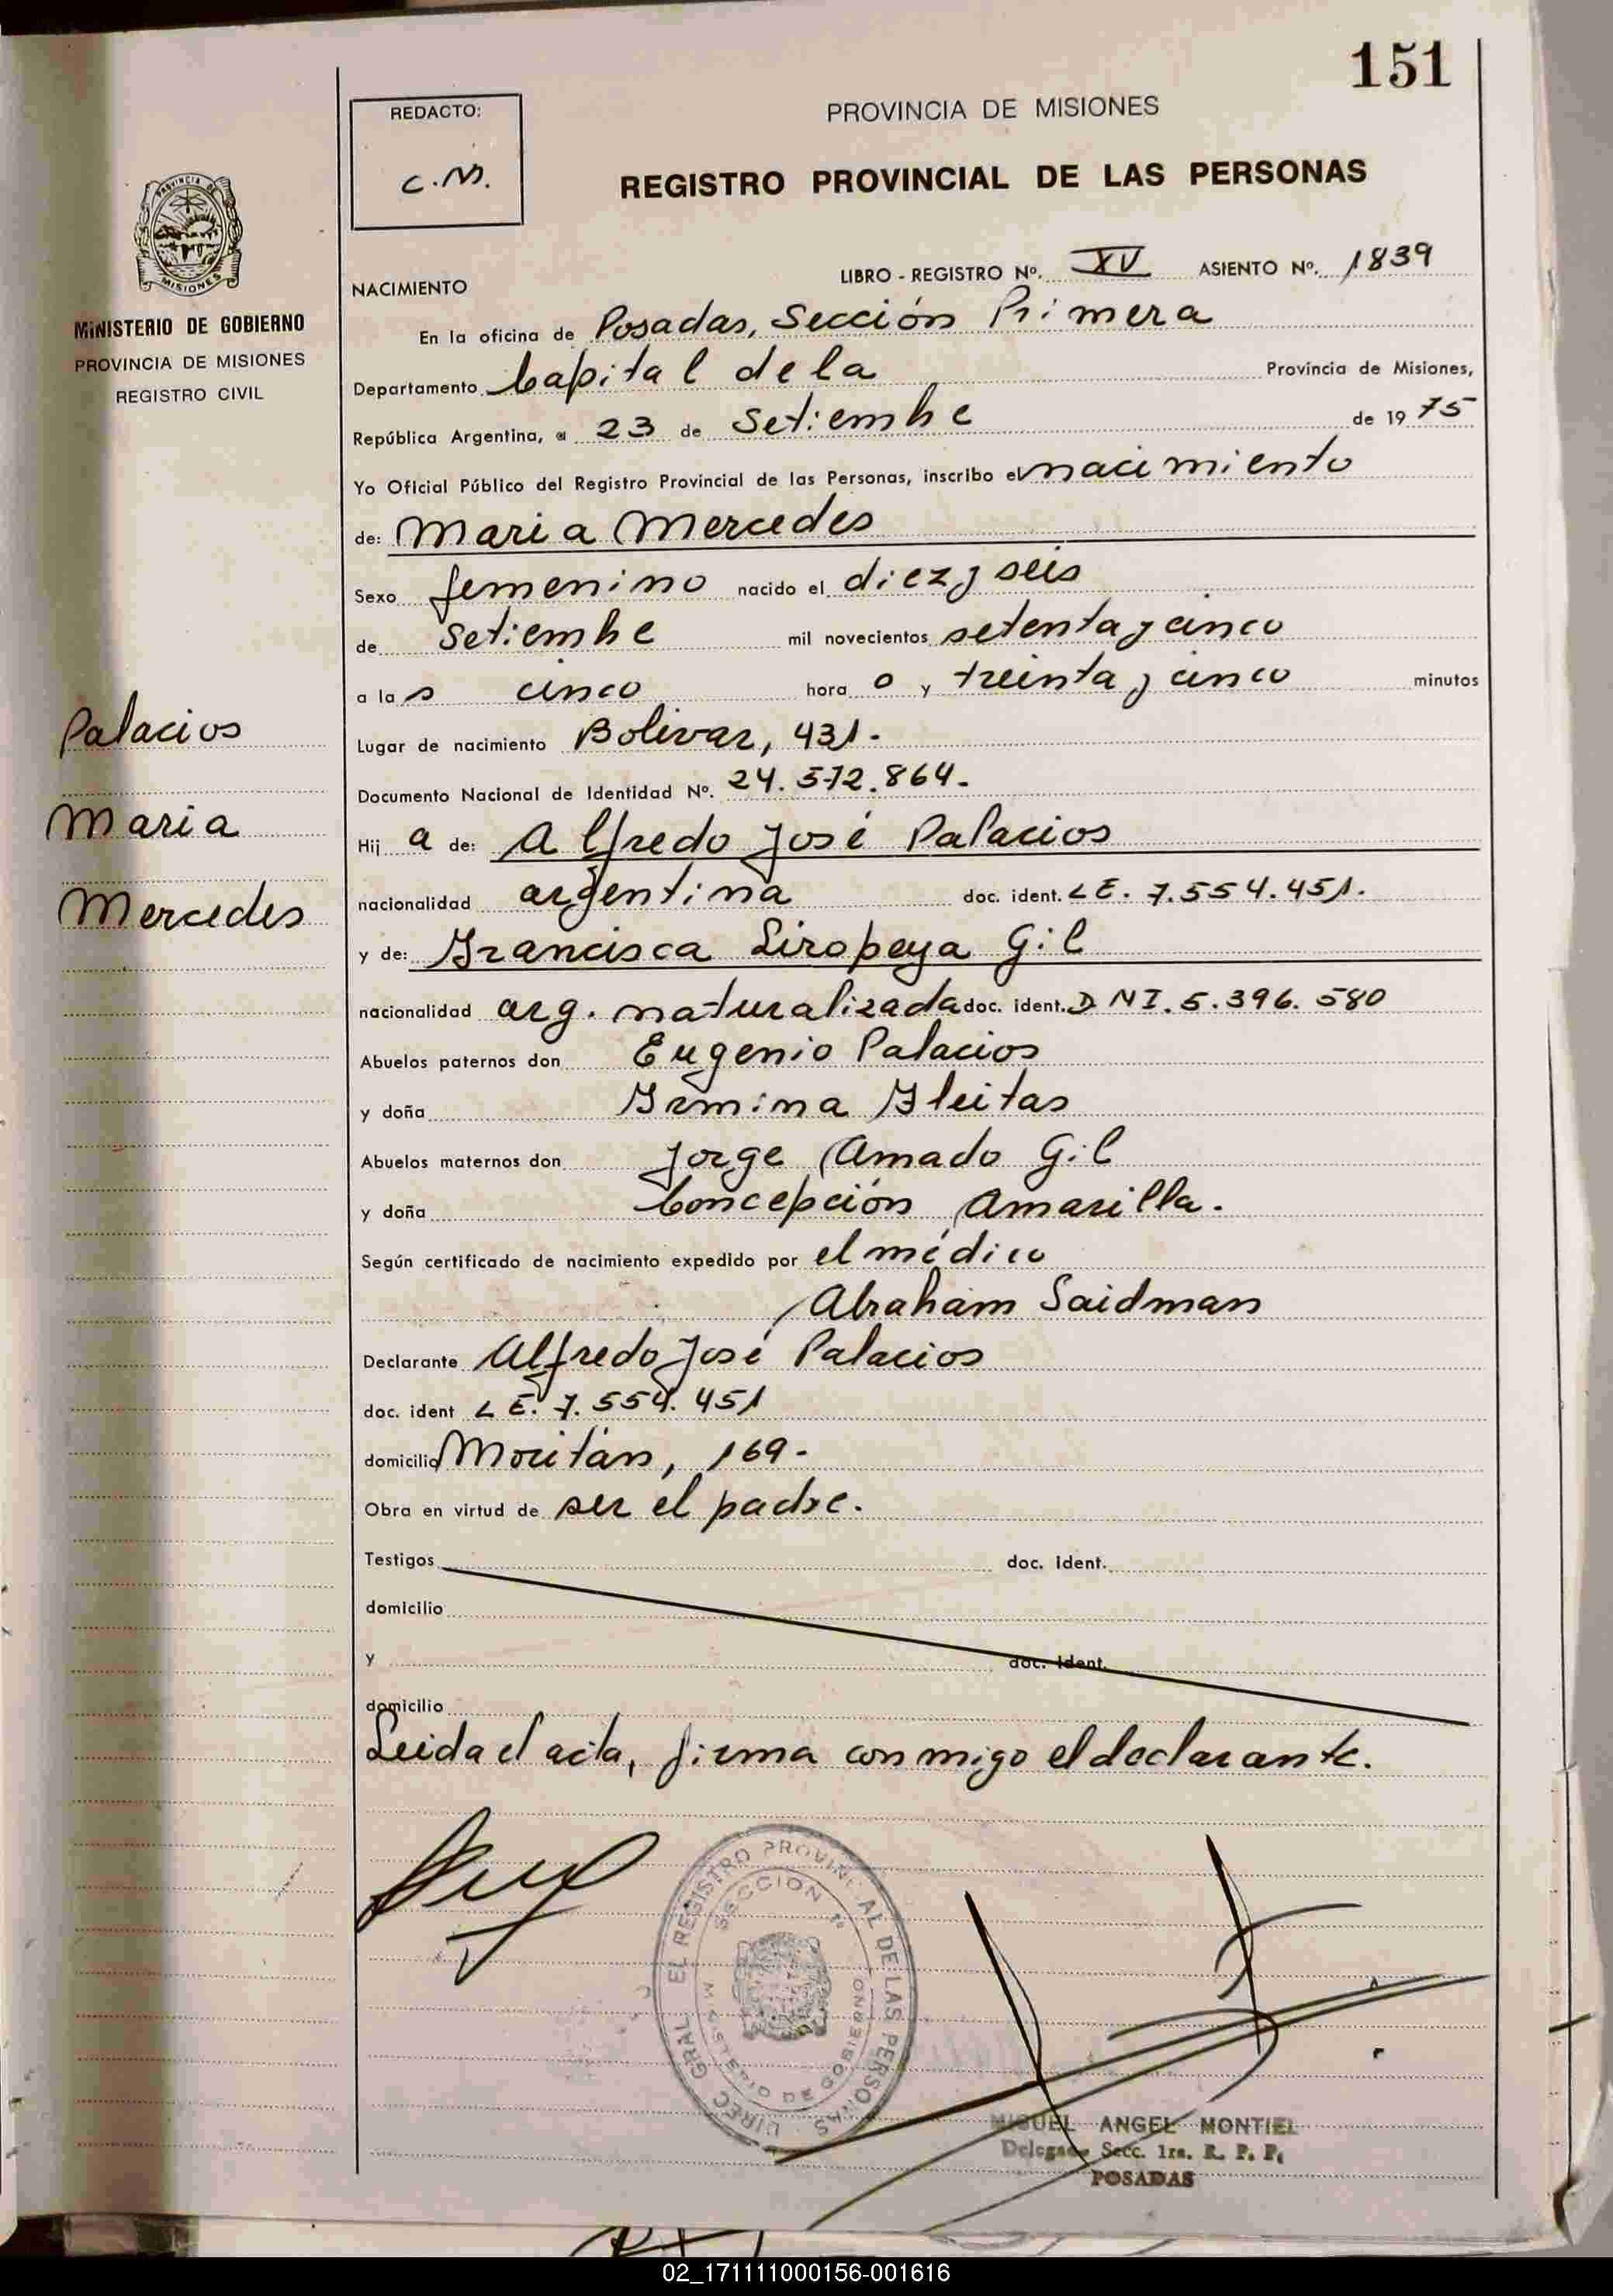 151
REDACTO:
C.M.
PROVINCIA DE MISIONES
REGISTRO PROVINCIAL DE LAS PERSONAS
PROVINCIA DE
MISIONES
MINISTERIO DE GOBIERNO
PROVINCIA DE MISIONES
REGISTRO CIVIL
Palacios
Maria
Mercedes
NACIMIENTO LIBRO - REGISTRO Nº. XV ASIENTO Nº. 1839
En la oficina de Posadas, Sección Primera
Departamento Capital de la Provincia de Misiones,
República Argentina, a 23 de Setiembre de 1975
Yo Oficial Público del Registro Provincial de las Personas, inscribo el nacimiento
de: Maria Mercedes
Sexo femenino nacido el diez y seis
de Setiembre mil novecientos setenta y cinco
a las cinco hora o y treinta y cinco minutos
Lugar de nacimiento Bolivar, 431.
Documento Nacional de Identidad Nº. 24.572.864.
Hij a de: Alfredo José Palacios
nacionalidad argentina doc. ident. LE. 7.554.451.
y de: Francisca Liropeya Gil
nacionalidad arg. naturalizada doc. ident. DNI. 5.396.580
Abuelos paternos don Eugenio Palacios
y doña Irmina Fleitas
Abuelos maternos don Jorge Amado Gil
y doña Concepción Amarilla.
Según certificado de nacimiento expedido por el médico
Abraham Saidman
Declarante Alfredo José Palacios
doc. ident LE. 7.554.451
domicilio Moritán, 169.
Obra en virtud de ser el padre.
Testigos doc. ident.
domicilio
y doc. ident.
domicilio
Leida el acta, firma conmigo el declarante.
DIREC GRAL EL REGISTRO PROVINCIAL DE LAS PERSONAS
SECCION 1ª
MINISTERIO DE GOBIERNO
MIGUEL ANGEL MONTIEL
Delegado Secc. 1ra. R. P. P.
POSADAS
02_171111000156-001616